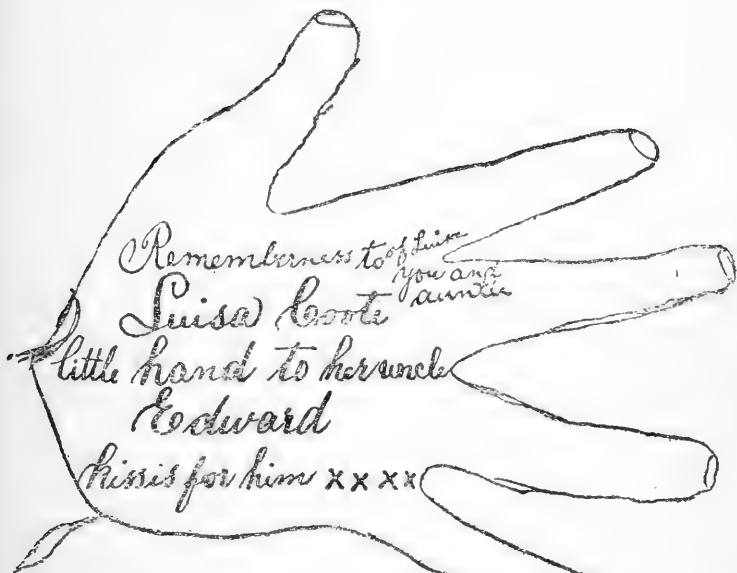 Rememberness to of Luisa
you and
auntie
Luisa Coote
little hand to her uncle
Edward
kissis for him x x x x